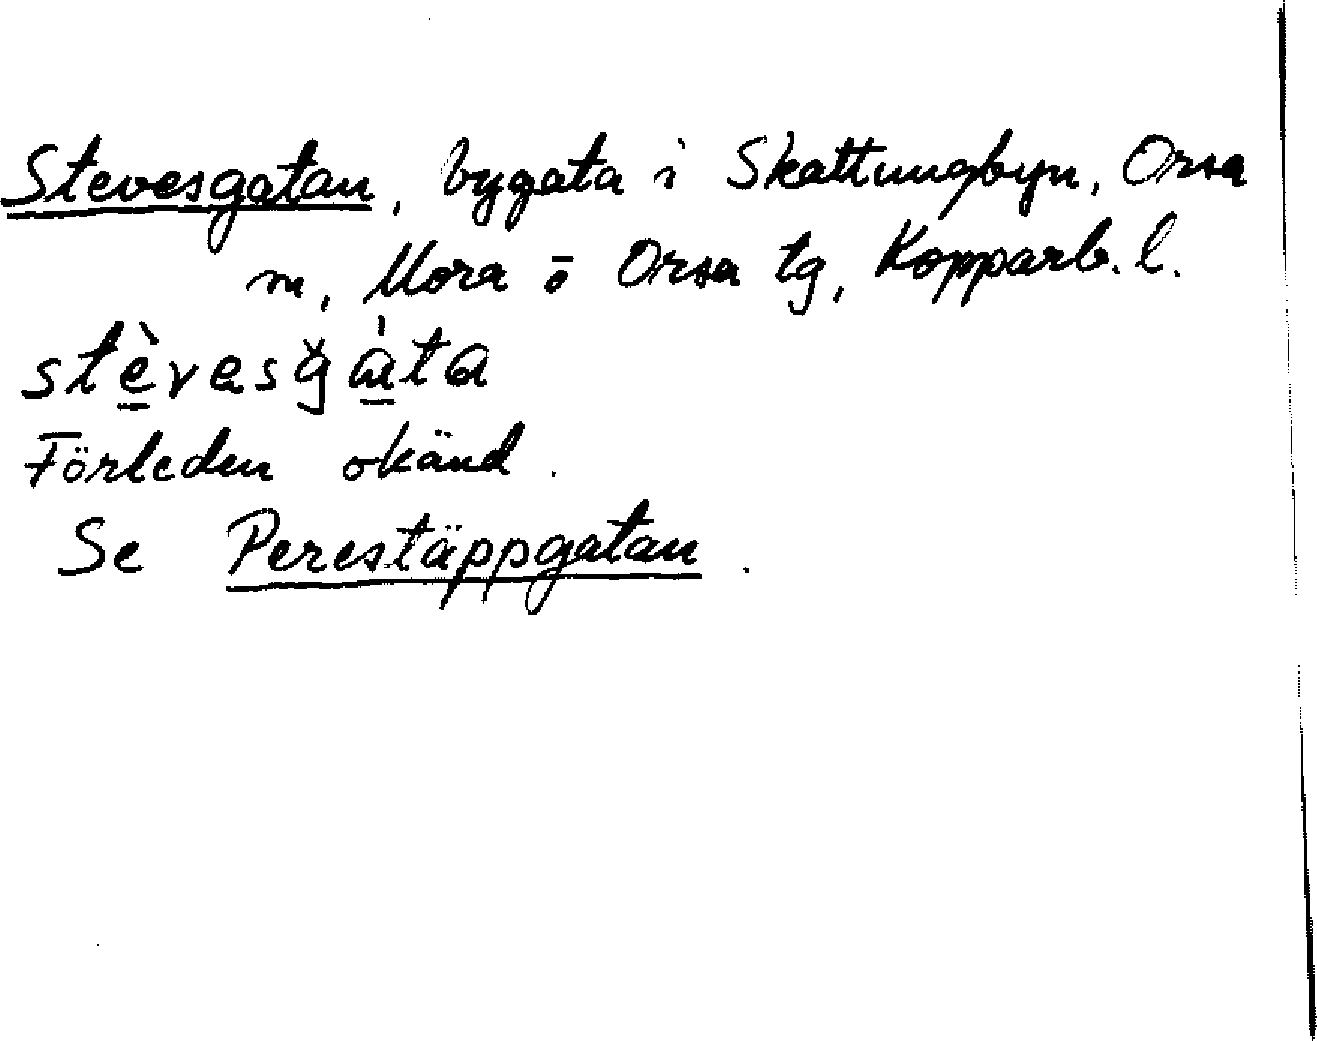 Stevesgatan, bygata i Skattungbyn, Orsa
m, Mora o Orsa tg, Kopparb. l.
stèvesgàta
Förleden okänd.
Se Perestäppgatan.